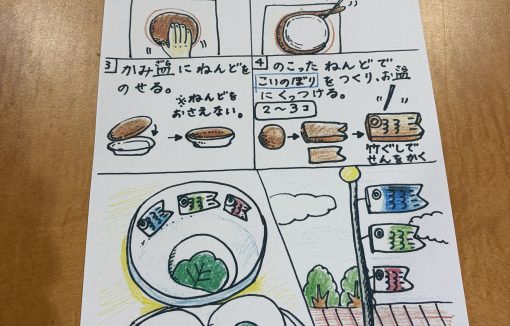 3 かみ皿にねんどを
のせる。
※ねんどを
おさえない。
4 のこったねんどで
こいのぼりをつくり、お皿
にくっつける。
2〜3コ
竹ぐしで
せんをかく